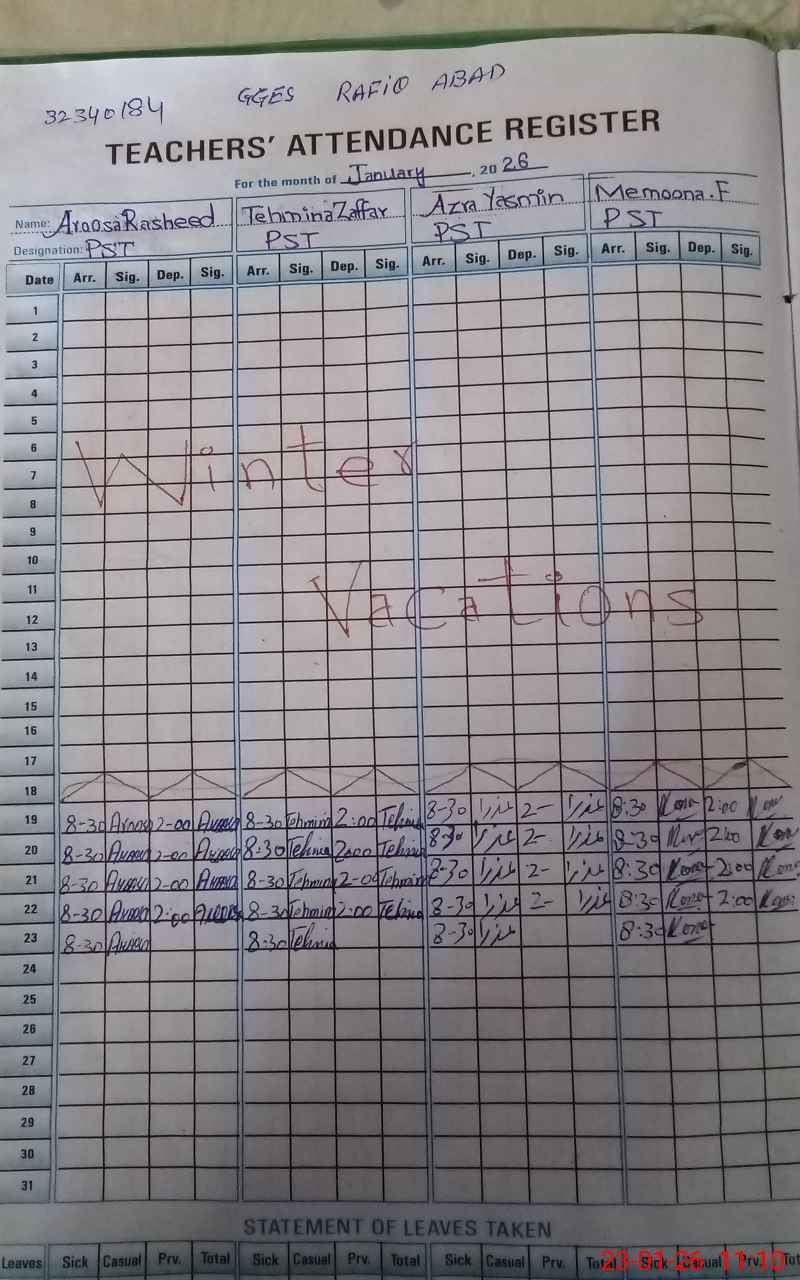 32340184 GGES RAFIQ ABAD
TEACHERS' ATTENDANCE REGISTER
For the month of January, 2026
Name: Aroosa Rasheed Tehmina Zaffar Azra Yasmin Memoona.F
Designation: PST PST PST PST
Date Arr. Sig. Dep. Sig. Arr. Sig. Dep. Sig. Arr. Sig. Dep. Sig. Arr. Sig. Dep. Sig.
1
2
3
4
5
6
7 Winter
8
9
10
11
12 Vacations
13
14
15
16
17
18
19 8-30 2-00 8-30 2:00 8-30 عذرا 2- عذرا 8:30 2:00
20 8-30 2-00 8:30 2:00 8-30 عذرا 2- عذرا 8-30 2:00
21 8-30 2-00 8-30 2-00 8-30 عذرا 2- عذرا 8:30 2:00
22 8-30 2:00 8-30 2:00 8-30 عذرا 2- عذرا 8:30 2:00
23 8-30 8:30 8-30 عذرا 8:30
24
25
26
27
28
29
30
31
STATEMENT OF LEAVES TAKEN
Leaves Sick Casual Prv. Total Sick Casual Prv. Total Sick Casual Prv. Total Sick Casual Prv. Tot
23-01-26 11:10